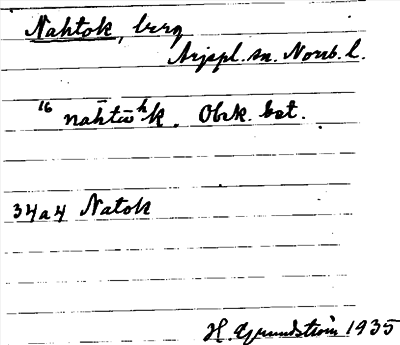 Nahtok, berg
Arjepl. sn. Norrb. l.
16 nāhtω̄ʰk. Obek. bet.
34a4 Natok
H. Grundström 1935